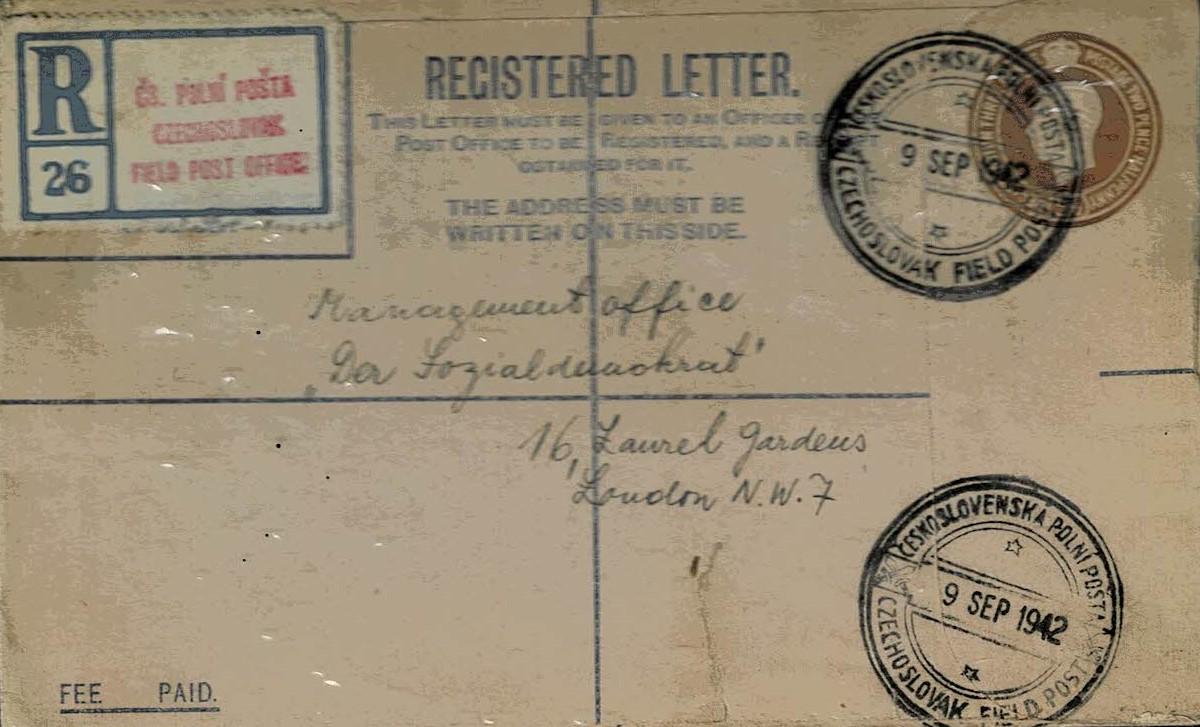 R
26
ČS. POLNÍ POŠTA
CZECHOSLOVAK
FIELD POST OFFICE
REGISTERED LETTER.
THIS LETTER MUST BE GIVEN TO AN OFFICER
POST OFFICE TO BE REGISTERED, AND A
OBTAINED FOR IT.
THE ADDRESS MUST BE
WRITTEN ON THIS SIDE.
ČESKOSLOVENSKÁ POLNÍ POŠTA
9 SEP 1942
CZECHOSLOVAK FIELD POST
Management office
„Der Sozialdemokrat"
16, Laurel Gardens
London N.W.7
ČESKOSLOVENSKÁ POLNÍ POŠTA
9 SEP 1942
CZECHOSLOVAK FIELD POST
FEE PAID.